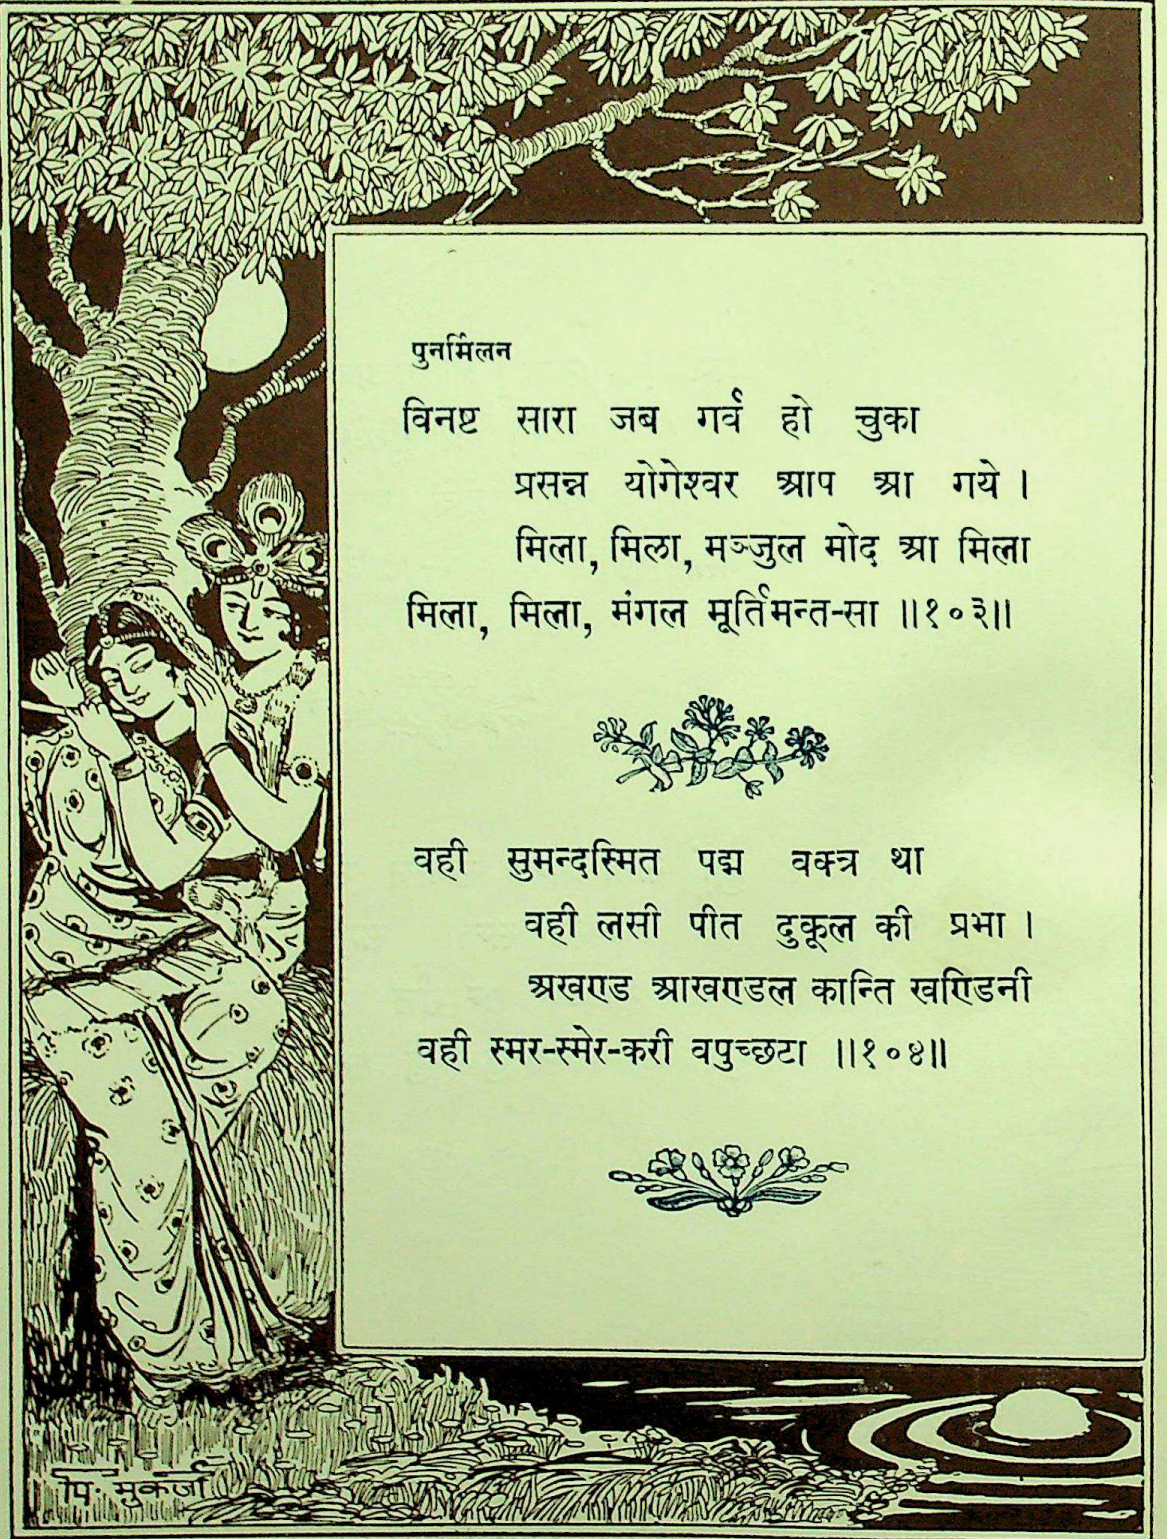 पुनर्मिलन
विनष्ट सारा जब गर्व हो चुका
प्रसन्न योगेश्वर आप आ गये ।
मिला, मिला, मञ्जुल मोद आ मिला
मिला, मिला, मंगल मूर्तिमन्त-सा ॥१०३॥
वही सुमन्दस्मित पद्म वक्त्र था
वही लसी पीत दुकूल की प्रभा ।
अखण्ड आखण्डल कान्ति खण्डिनी
वही स्मर-स्मेर-करी वपुच्छटा ॥१०४॥
पि. मुकर्जी